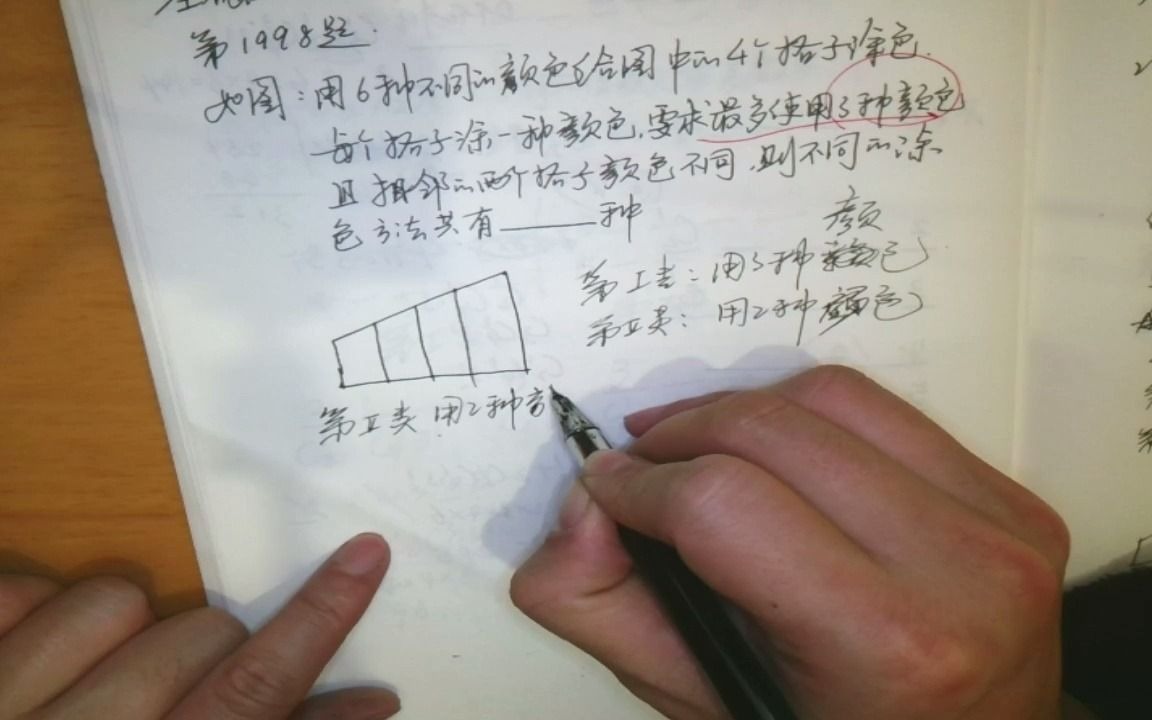 第1998题.
如图：用6种不同的颜色给图中的4个格子涂色.
每个格子涂一种颜色,要求最多使用3种颜色
且相邻的两个格子颜色不同,则不同的涂
色方法共有______种
颜
第I类：用3种颜色
第II类：用2种颜色
第II类 用2种